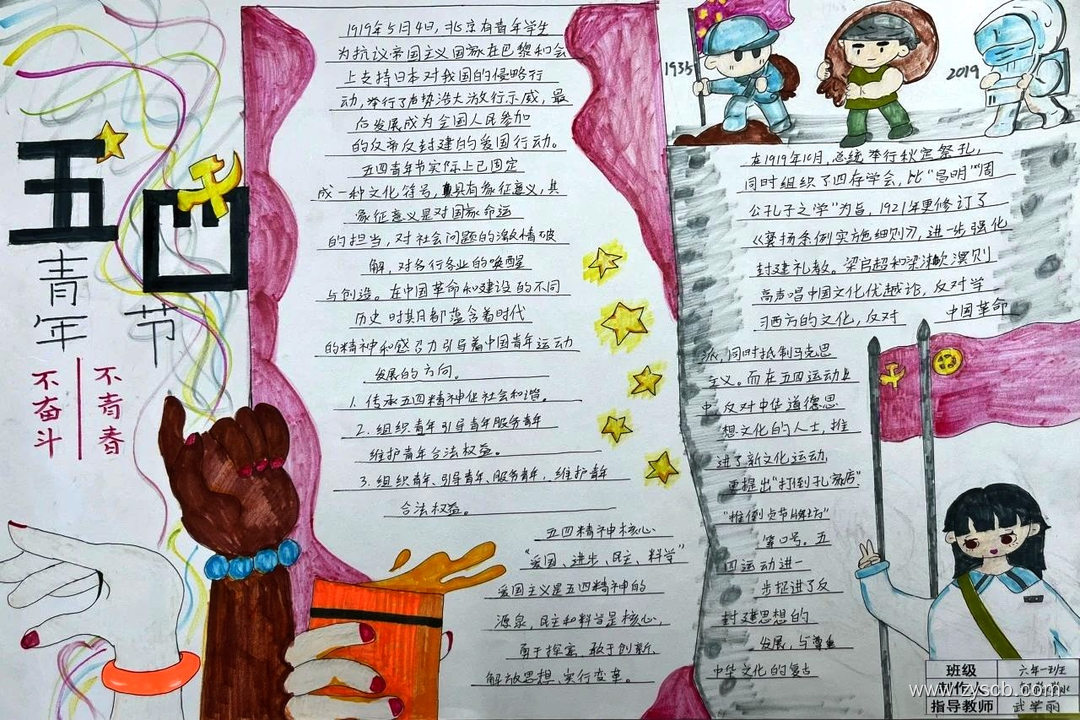 五四
青年节
不青春
不奋斗
1919年5月4日,北京有青年学生
为抗议帝国主义国家在巴黎和会
上支持日本对我国的侵略行
动,举行了声势浩大游行示威,最
后发展成为全国人民参加
的反帝反封建的爱国行动。
五四青年节实际上已固定
成一种文化符号,具有象征意义,其
象征意义是对国家命运
的担当,对社会问题的激情破
解,对各行各业的唤醒
与创造。在中国革命和建设的不同
历史时期都蕴含着时代
的精神和感召力引导着中国青年运动
发展的方向。
1.传承五四精神促社会和谐。
2.组织青年引导青年服务青年
维护青年合法权益。
3.组织青年、引导青年、服务青年,维护青年
合法权益。
五四精神核心
"爱国、进步、民主、科学"
爱国主义是五四精神的
源泉,民主和科学是核心,
勇于探索、敢于创新、
解放思想、实行变革。
1935
2019
在1919年10月,总统举行秋定祭孔,
同时组织了四存学会,以"昌明""周
公孔子之学"为旨,1921年更修订了
《褒扬条例实施细则》,进一步强化
封建礼教。梁启超和梁漱溟则
高声唱中国文化优越论,反对学
习西方的文化,反对
中国革命
派,同时抵制马克思
主义。而在五四运动
中,反对中华道德思
想文化的人士,推
进了新文化运动,
更提出"打倒孔家店"
"推倒贞节牌坊"
等口号。五
四运动进一
步推进了反
封建思想的
发展,与尊重
中华文化的复古
班级 六年一班
制作
指导教师 武学丽
www.zyscb.com